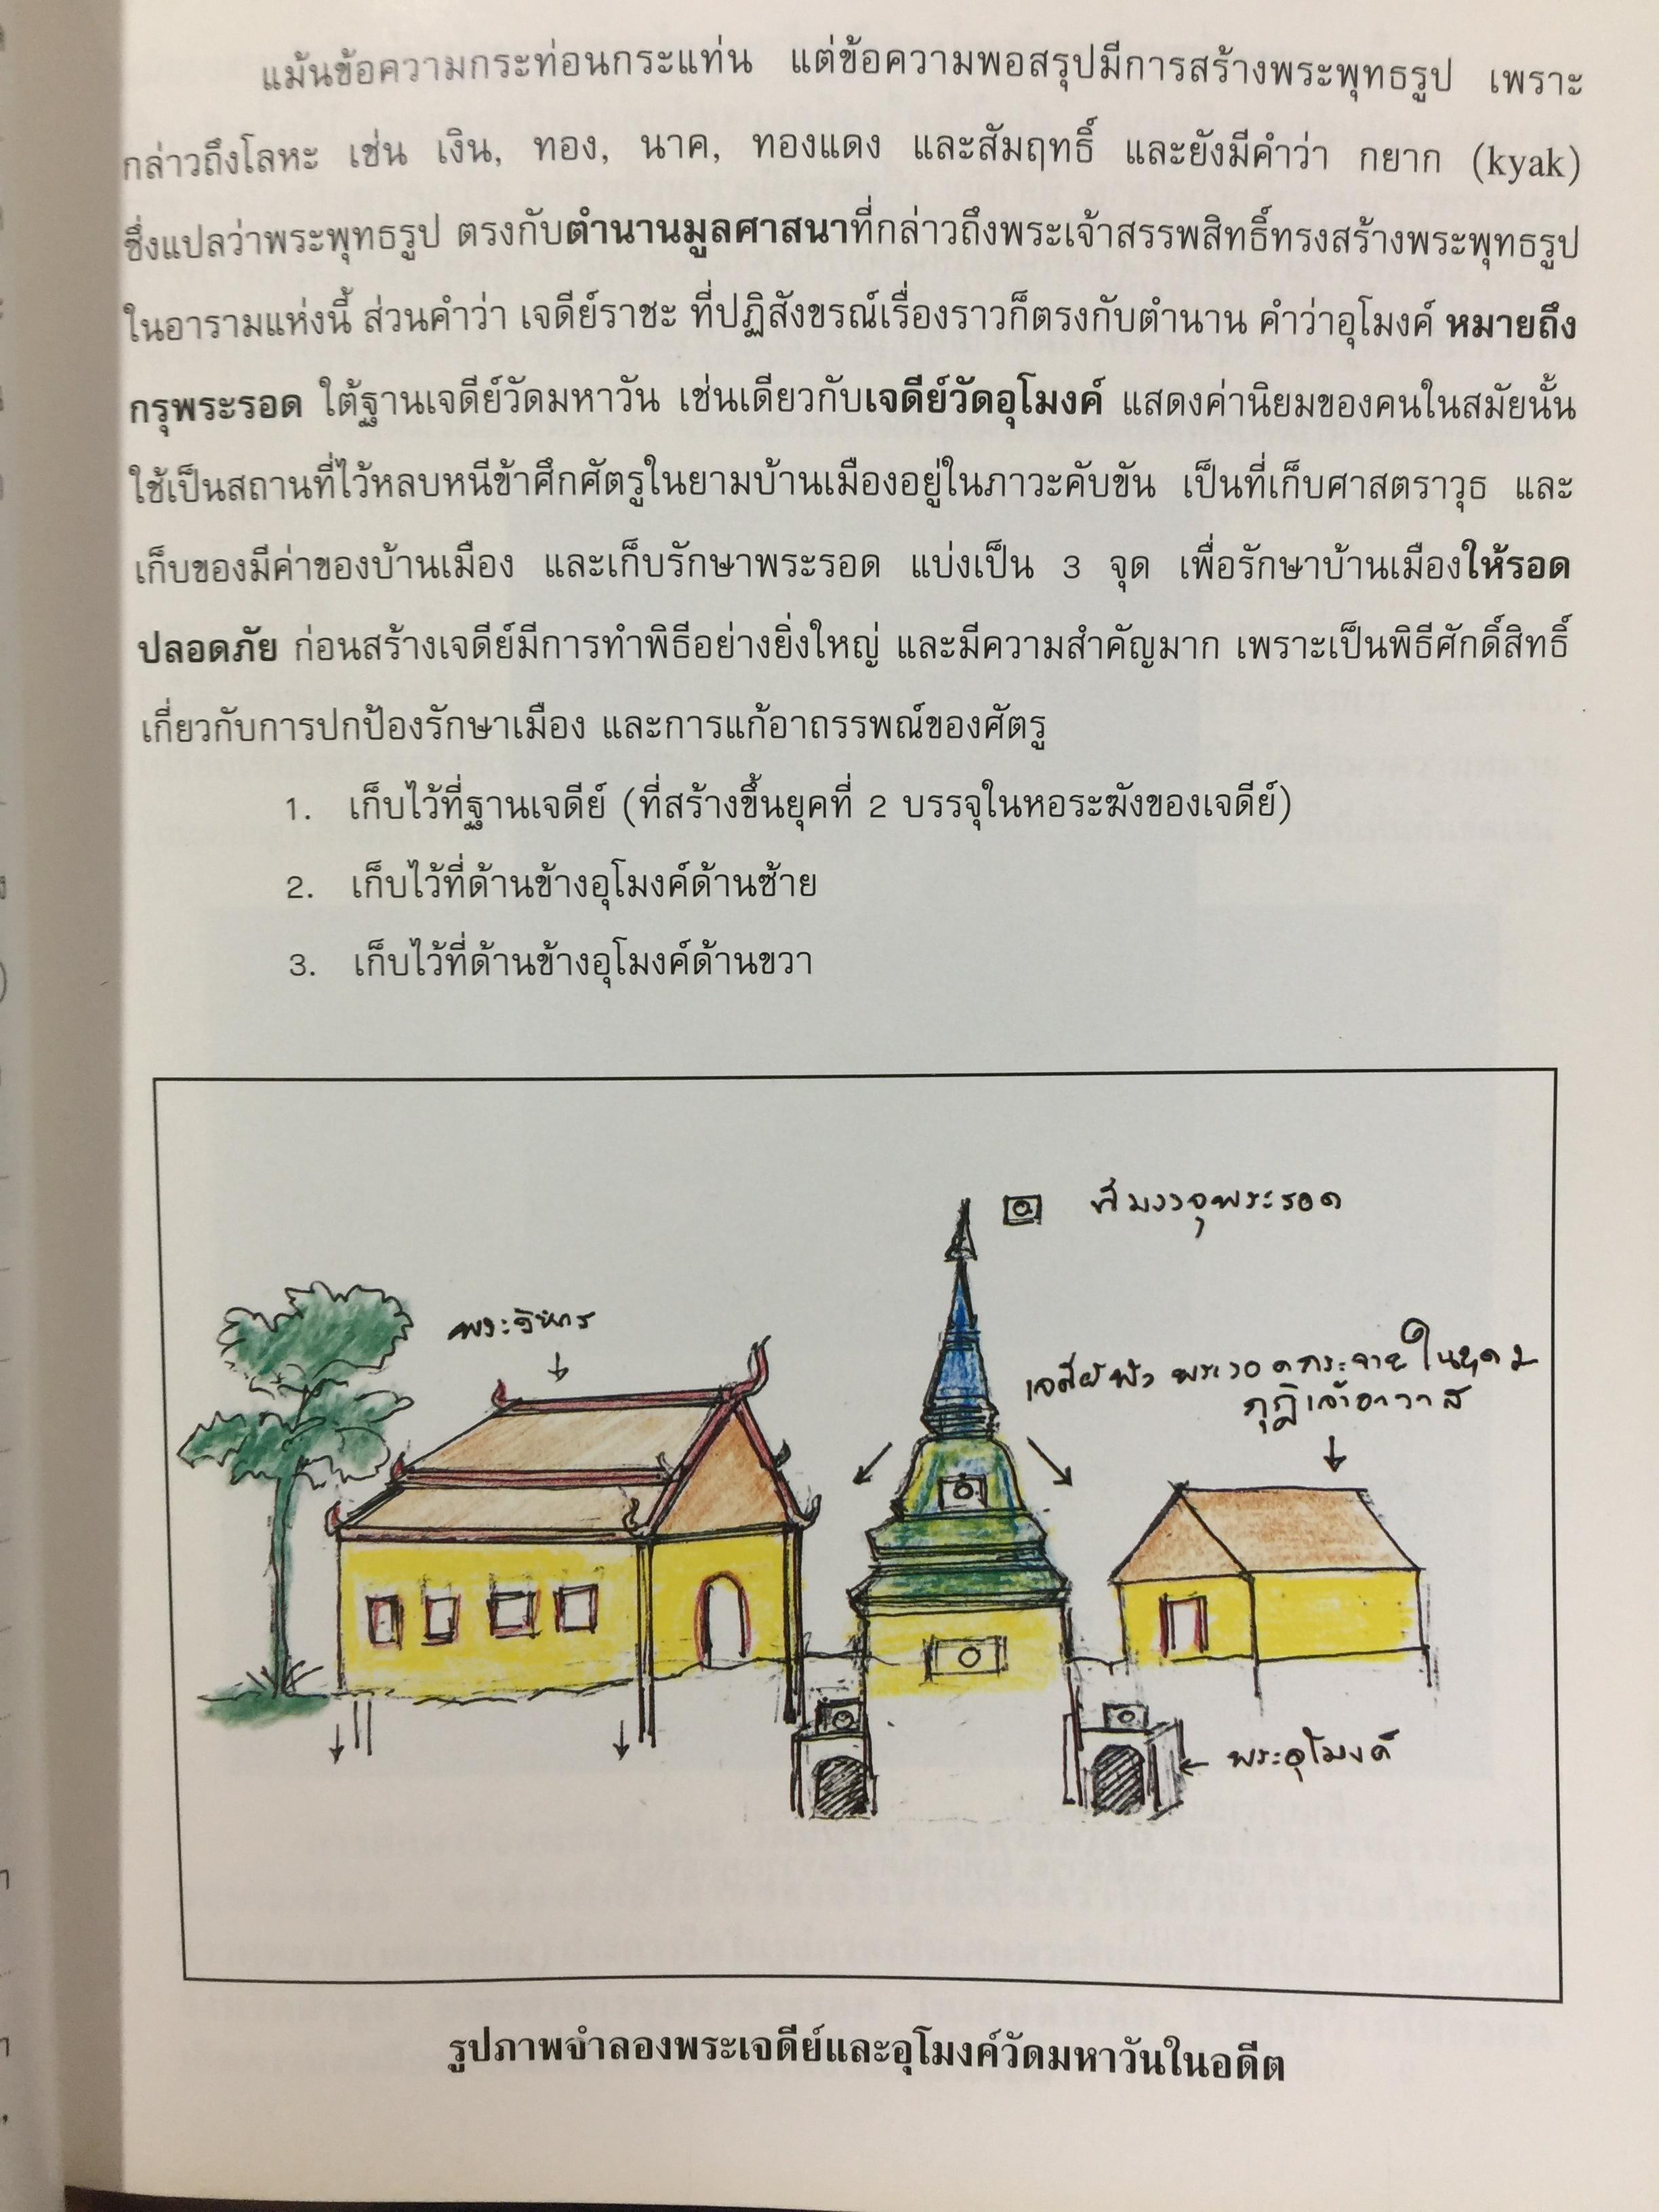 แม้นข้อความกระท่อนกระแท่น แต่ข้อความพอสรุปมีการสร้างพระพุทธรูป เพราะ
กล่าวถึงโลหะ เช่น เงิน, ทอง, นาค, ทองแดง และสัมฤทธิ์ และยังมีคำว่า กยาก (kyak)
ซึ่งแปลว่าพระพุทธรูป ตรงกับตำนานมูลศาสนาที่กล่าวถึงพระเจ้าสรรพสิทธิ์ทรงสร้างพระพุทธรูป
ในอารามแห่งนี้ ส่วนคำว่า เจดีย์ราชะ ที่ปฏิสังขรณ์เรื่องราวก็ตรงกับตำนาน คำว่าอุโมงค์ หมายถึง
กรุพระรอด ใต้ฐานเจดีย์วัดมหาวัน เช่นเดียวกับเจดีย์วัดอุโมงค์ แสดงค่านิยมของคนในสมัยนั้น
ใช้เป็นสถานที่ไว้หลบหนีข้าศึกศัตรูในยามบ้านเมืองอยู่ในภาวะคับขัน เป็นที่เก็บศาสตราวุธ และ
เก็บของมีค่าของบ้านเมือง และเก็บรักษาพระรอด แบ่งเป็น 3 จุด เพื่อรักษาบ้านเมืองให้รอด
ปลอดภัย ก่อนสร้างเจดีย์มีการทำพิธีอย่างยิ่งใหญ่ และมีความสำคัญมาก เพราะเป็นพิธีศักดิ์สิทธิ์
เกี่ยวกับการปกป้องรักษาเมือง และการแก้อาถรรพณ์ของศัตรู
1. เก็บไว้ที่ฐานเจดีย์ (ที่สร้างขึ้นยุคที่ 2 บรรจุในหอระฆังของเจดีย์)
2. เก็บไว้ที่ด้านข้างอุโมงค์ด้านซ้าย
3. เก็บไว้ที่ด้านข้างอุโมงค์ด้านขวา
ที่บรรจุพระรอด
พระวิหาร
เจดีย์พัง พระรอดกระจายใน
กุฏิเจ้าอาวาส
พระอุโมงค์
รูปภาพจำลองพระเจดีย์และอุโมงค์วัดมหาวันในอดีต